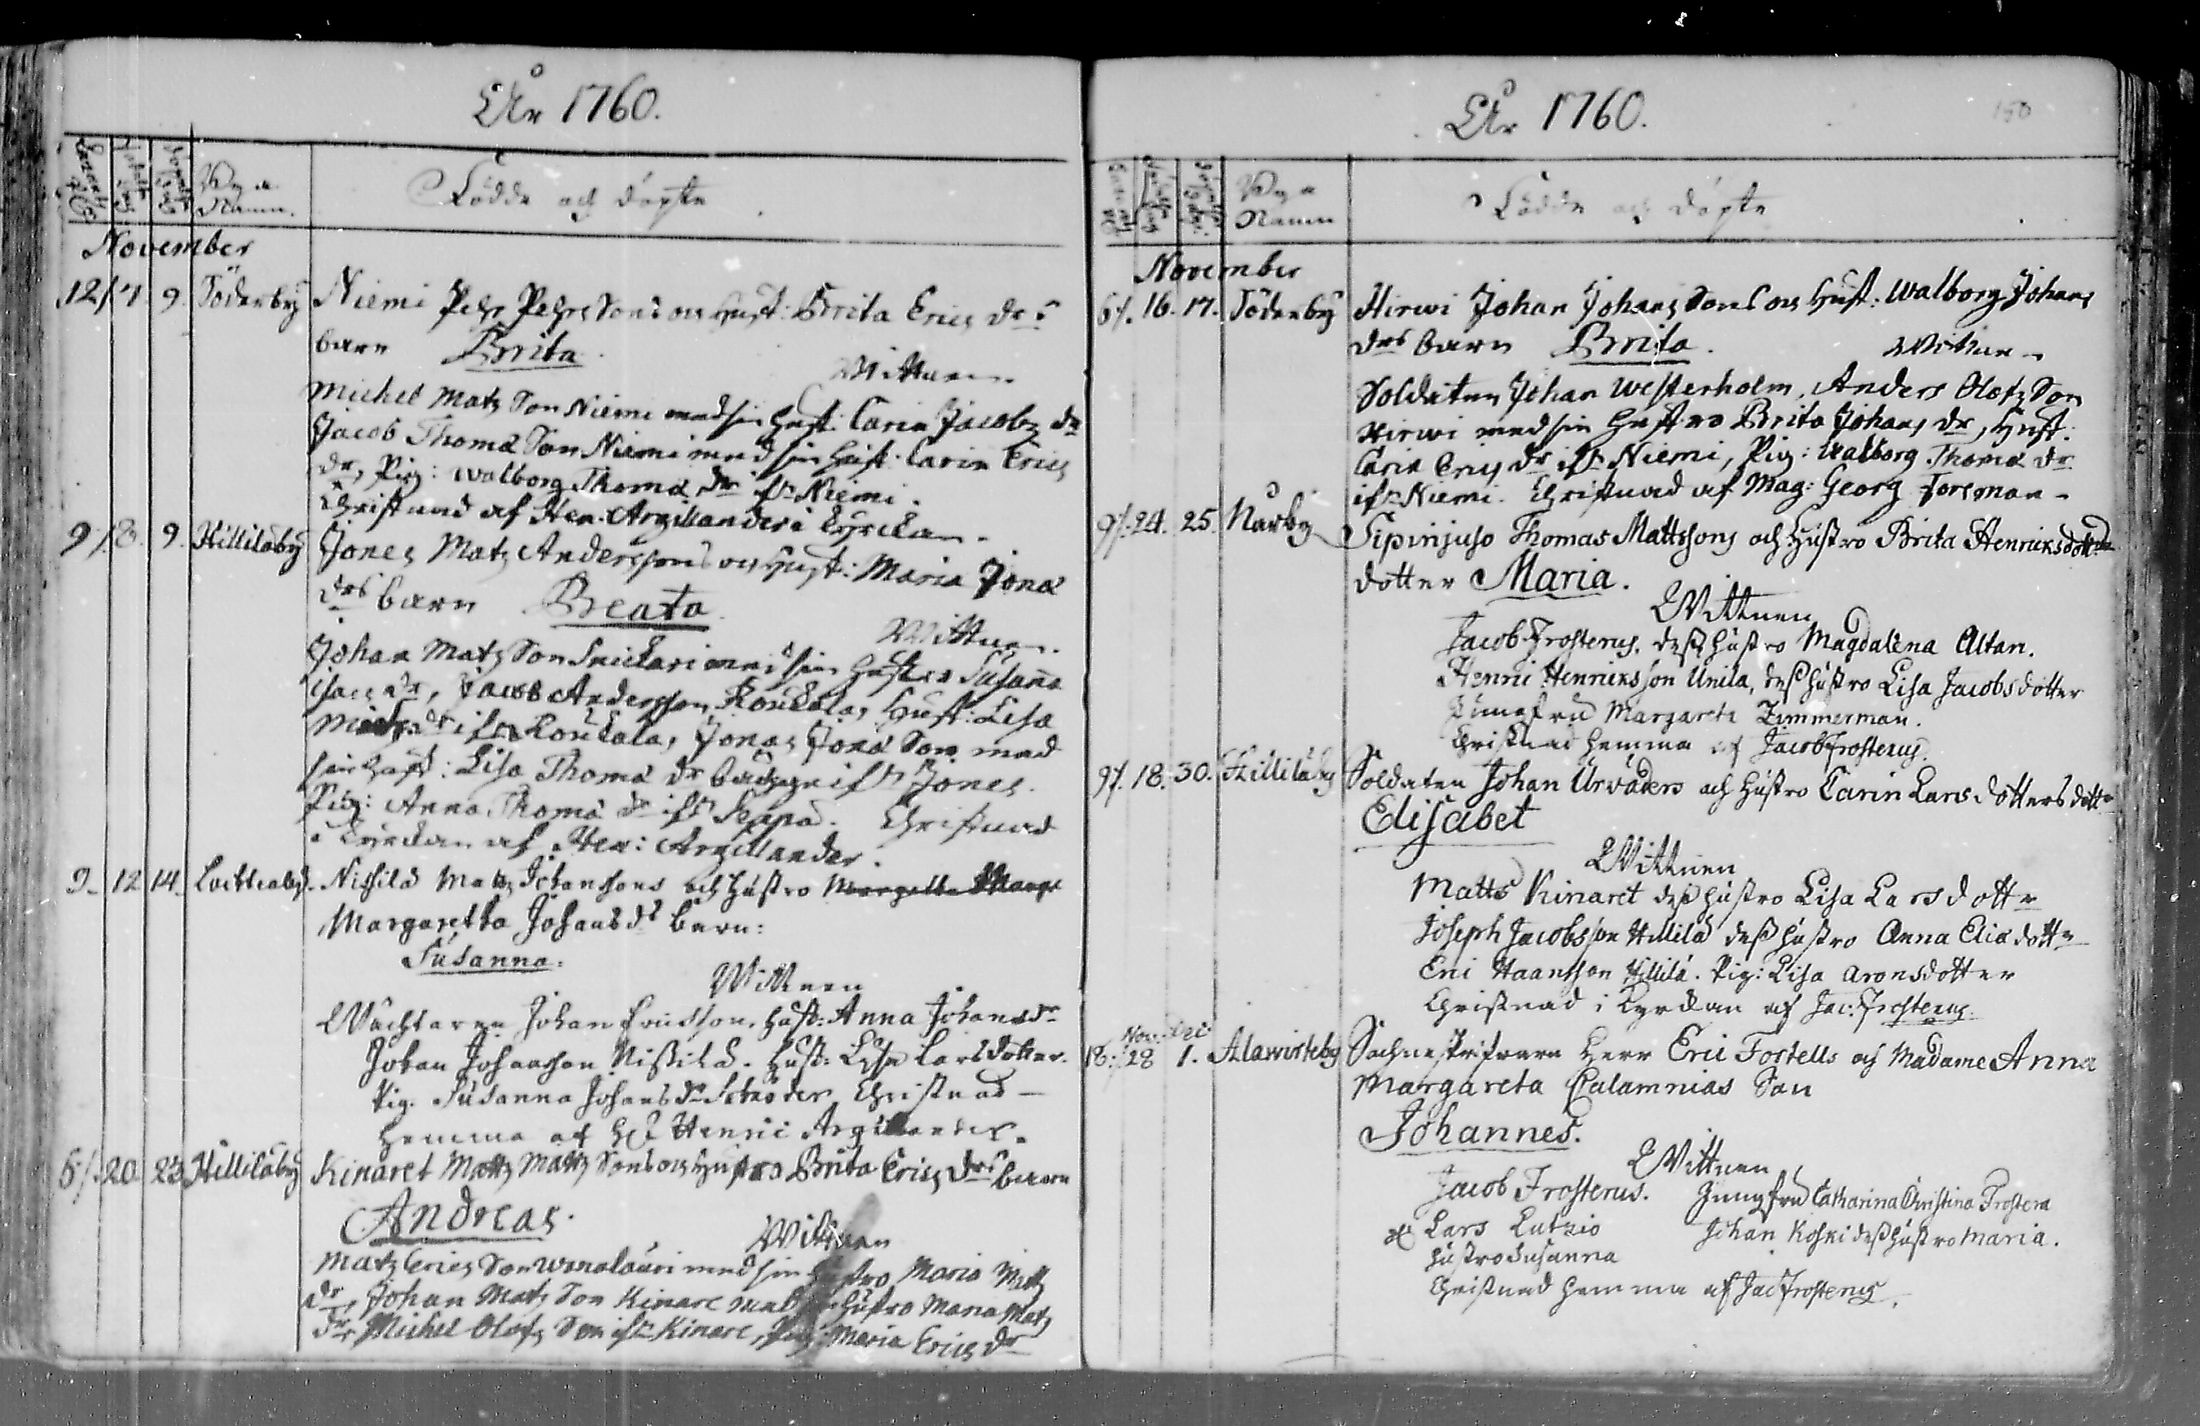 År 1760.
Bya Namn.
Födde och döpte
November
12/. 7 9. Söderby Niemi Pehr Pehrs Sons och Hust: Brita Erics drs
barn Brita.
Wittnen
Michel Matz Son Niemi med sin Hust: Carin Jacobz dr
Jacob Thomæ Son Niemi med sin Hust: Carin Erics
dr, Pig: Walborg Thomæ dr ifr Niemi.
Christnad af Hen: Argillander i Kyrckan.
9/. 8. 9. Hilliläby Jones Matz Anderssons och Hust: Maria Jonæ
drs barn Beata
Wittnen.
Johan Matz Son Snickari med sin Hustro Susanna
Isacs dr, Jacob Andersson Koukola, Hust: Lisa
Matz dr ifr Koukala, Jonas Jonæ Son med
sin Hust: Lisa Thomæ dr ifr Jones.
Pig: Anna Thomæ dr ifr Seppä. Christnad
i Kyrckan af Hen: Argillander.
9. 12 14. Nissilä Matz Johanssons och Hustro
Margaretta Johans drs barn:
Susanna.
Wittnen
Wächtaren Johan Ericsson, Hust: Anna Johans dr
Johan Johansson Nissilä. Hust: Lisa Larsdotter.
Pig. Susanna Johans dr Christnad
hemma af Henric Argillander.
6/. 20. 23 Hilliläby Kinaret Matz Matz Sons och Hustro Brita Erics drs barn
Andreas.
Wittnen
Matz Erics Son med sin Hustro Maria Matz
dr, Johan Matz Son Kinare med sin Hustro Maria Matz
dr, Michel Olofz Son ifr Kinare, Pig: Maria Erics dr
År 1760.
150
Bya Namn
Födde och döpte
November
6/. 16. 17. Söderby Hirwi Johan Johans Sons och Hust: Walborg Johans
drs barn Brita.
Wittnen
Soldaten Johan Westerholm, Anders Olofz Son
Hirwi med sin Hustro Brita Johans dr, Hust:
Carin Erics dr ifr Niemi, Pig: Walborg Thomæ dr
ifr Niemi. Christnad af Mag: Georg Foreman
9/. 24. 25. Narby Sipinjuso Thomas Mattssons och Hustro Brita Henricsdotters
dotter Maria.
Wittnen
Jacob Frosterus, dess hustro Magdalena Altan.
Henric Henricsson Unila, dess hustro Lisa Jacobsdotter
Jungfru Margareta Zimmerman.
Christnad hemma af Jacob Frosterus.
9/. 18. 30. Hilliläby Soldaten Johan Urväders och Hustro Carin Larsdotters dotter
Elisabet
Wittnen
Matts Kinaret dess hustro Lisa Larsdotter
Joseph Jacobsson Hillilä dess hustro Anna Eliædotter
Eric Haansson Hillilä. Pig: Lisa Aronsdotter
Christnad i Kyrckan af Jac: Frosterus.
Nov. Dec.
18. 28 1. Alawirteby Sochneskrifvaren Herr Eric Fortells och Madame Anna
Margareta Calamnias Son
Johannes.
Wittnen
Jacob Frosterus. Jungfru Catharina Christina Frostera
Lars Johan Koski dess hustro Maria.
hustro Susanna
Christnad hemma af Jac Frosterus.